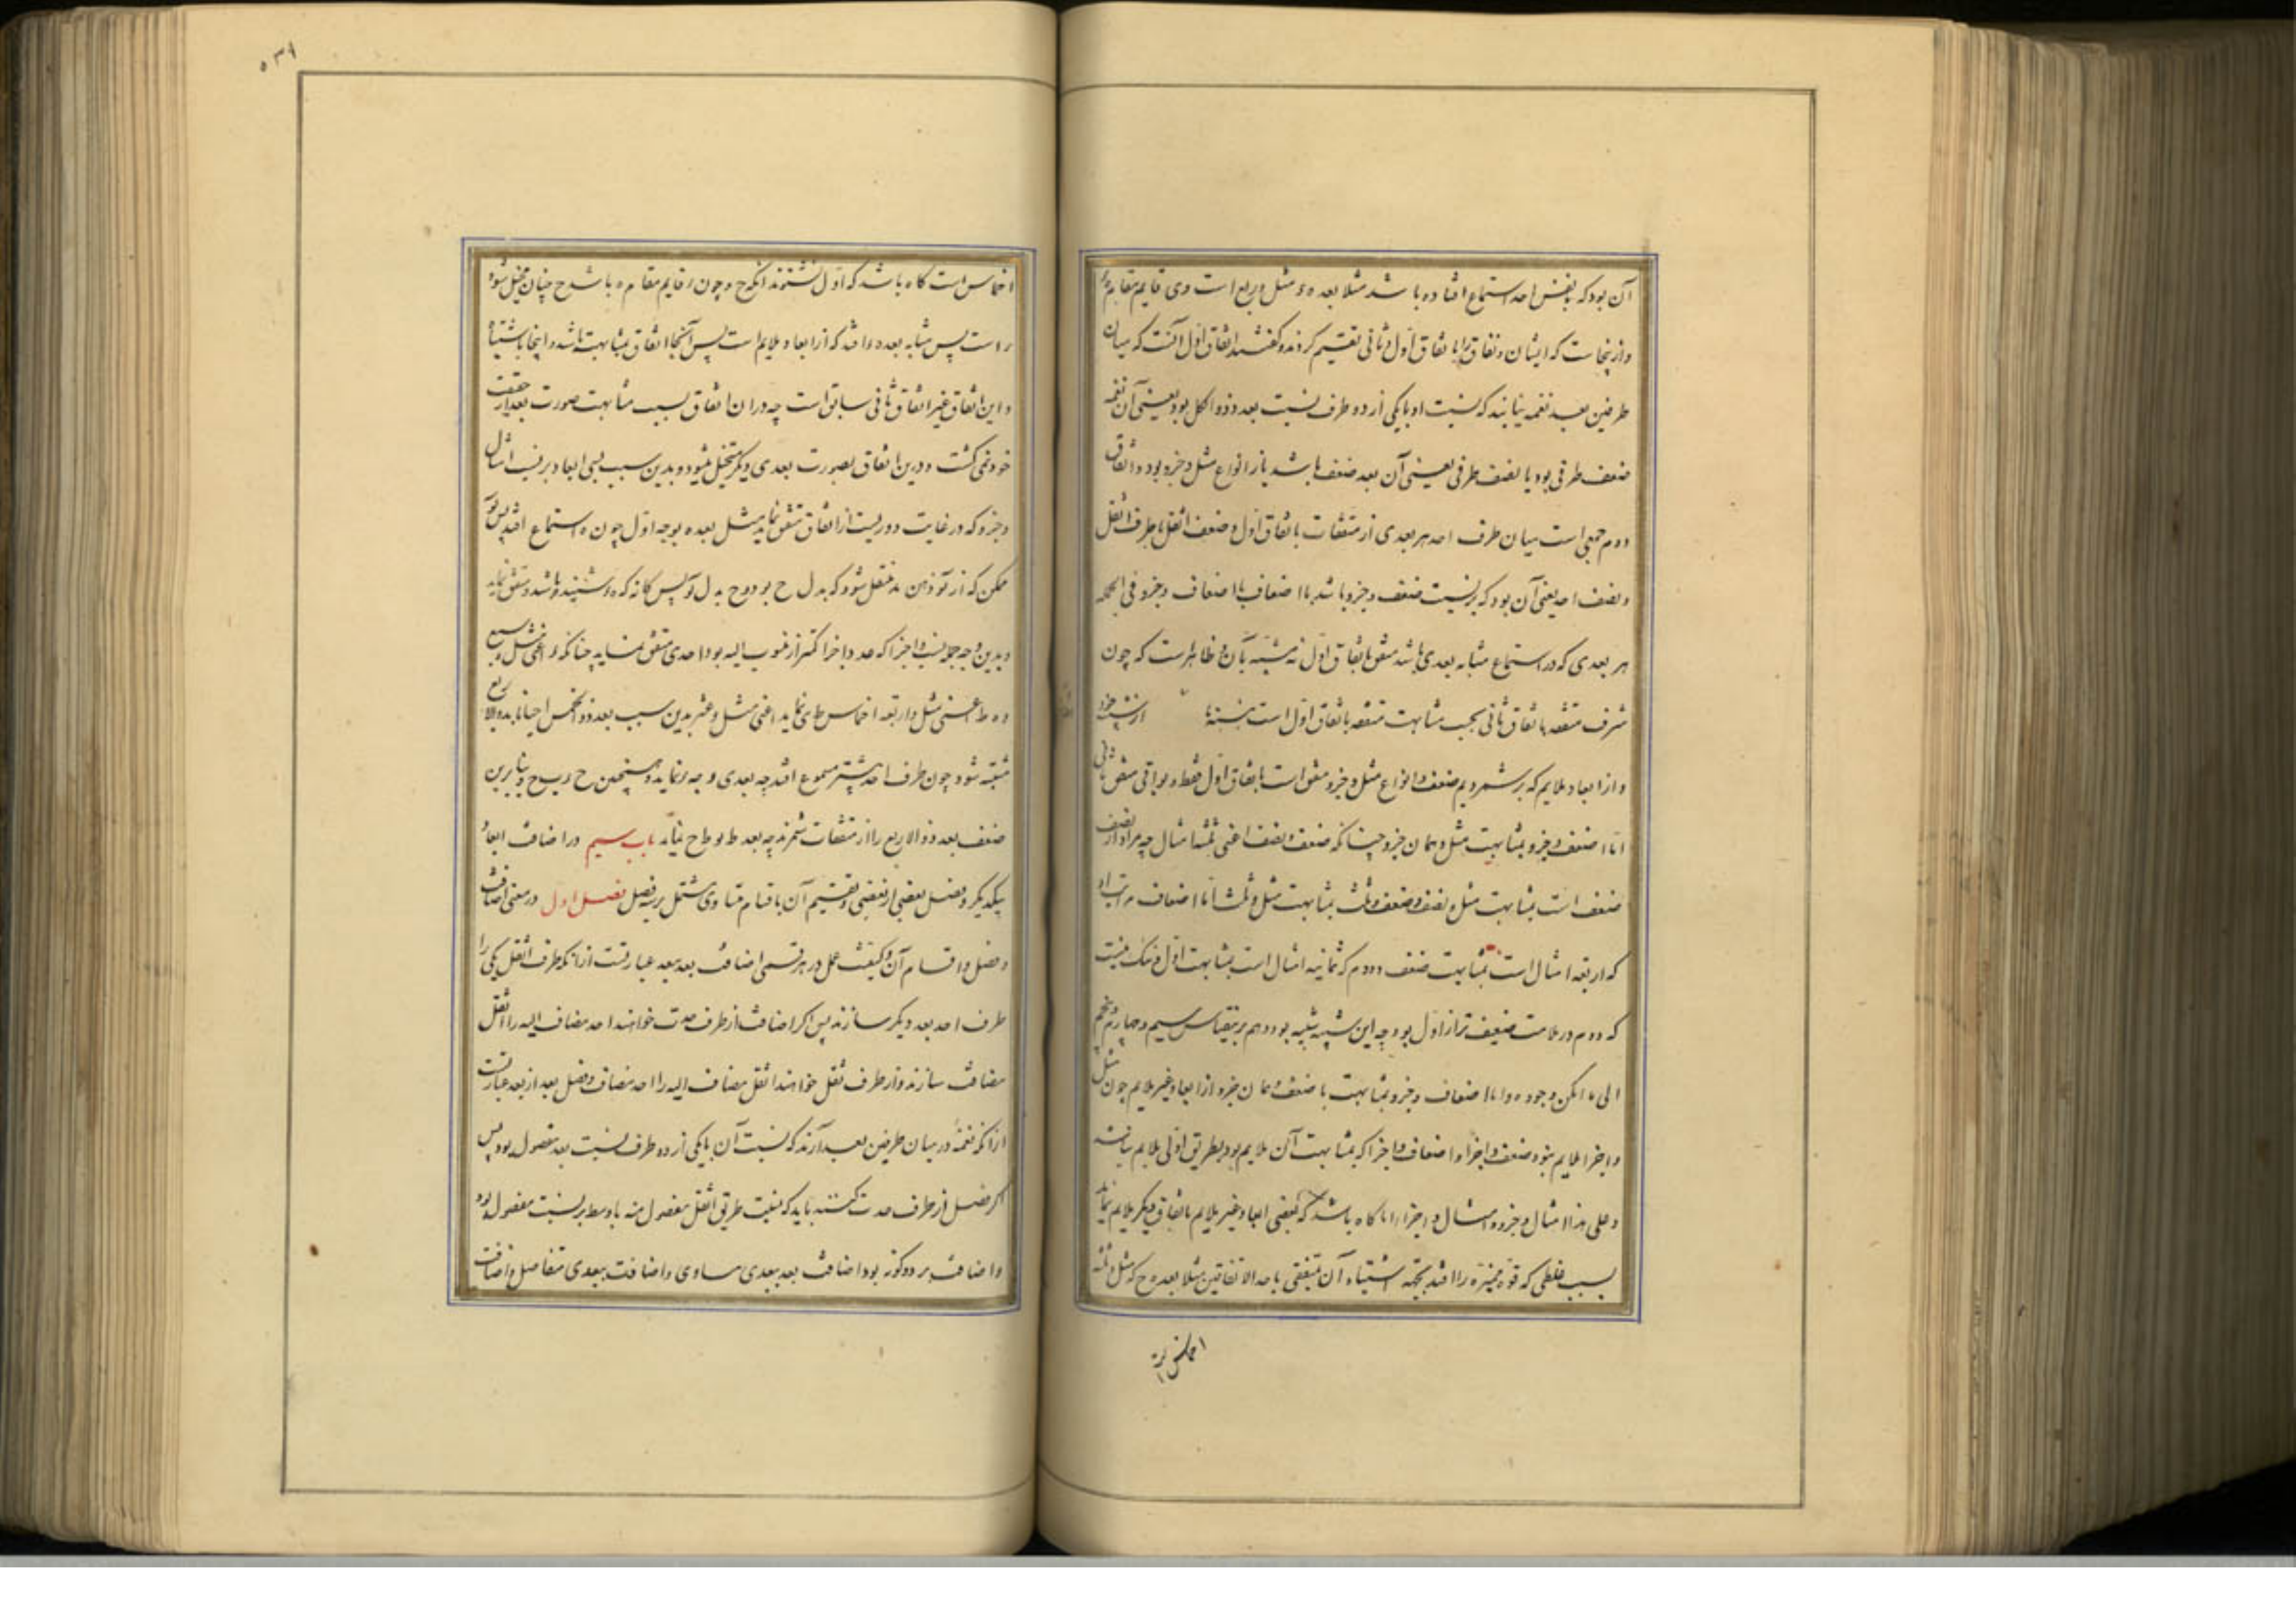 آن بود که بنفس احد استماع افتاده باشد مثلا بعد ه ء مثل و ربع است و ی قایم مقام
و ازینجاست که ایشان اتفاق را باتفاق اول و ثانی تقسیم کردند و گفتند اتفاق اول آنست که میان
طرفین بعد نغمه نیابند که نسبت او با یکی از دو طرف نسبت بعد ذو الکل بود یعنی آن نغمه
ضعف طرفی بود یا نصف طرفی یعنی آن بعد ضعف باشد یا از انواع مثل و جزو بود و اتفاق
دوم جمعی است میان طرف احد هر بعدی از متفقات باتفاق اول و ضعف اثقل یا طرف اثقل
و نصف احد یعنی آن بود که بر نسبت ضعف و جزو باشد یا اضعاف یا اضعاف و جزو فی الجمله
هر بعدی که در استماع مشابه بعدی باشد متفق باتفاق اول نه مشبه بآن و ظاهرست که چون
شرف متفقه باتفاق ثانی بحسب مشابهت متفقه باتفاق اول است
و از ابعاد ملایم که برشمردیم ضعف و انواع مثل و جزو متفق است باتفاق اول فقط و بواقی متفق
اما ضعف و جزو بمشابهت مثل و همان جزو چنانکه ضعف و نصف اعنی امثال چه مراد از نصف
ضعف است بمشابهت مثل و نصف و ضعف و ثلث بمشابهت مثل و ثلث اما اضعاف مراتب او
که اربعه امثال است بمشابهت ضعف و دوم که ثمانیه امثال است بمشابهت اول و شک نیست
که دوم در ملامت ضعیف تر از اول بود چه این شبیه شبیه بود و هم برینقیاس سیم و چهارم و پنجم
الی ما امکن وجوده و اما اضعاف و جزو بمشابهت با ضعف و همان جزو از ابعاد غیر ملایم چون مثل
و اجزا ملایم نبود ضعف و اجزا و اضعاف و اجزا که بمشابهت آن ملایم بود بطریق اولی ملایم نباشد
و علی هذا امثال و جزو و امثال و اجزا اما گاه باشد که بعضی ابعاد غیر ملایم باتفاق دیگر ملایم نماید
بسبب غلطی که قوة ممیزه را افتد بجهة اشتباه آن بمتفقی باحد الاتفاقین مثلا بعد ه ح که مثل و ثلثه
اخماس است گاه باشد که اول شنوند آنگه ح و چون قایم مقام ه باشد ح چنان متخیل شود
است پس مشابه بعد ه افتد که از ابعاد ملایم است پس آنجا اتفاق بمشابهت باشد و اینجا باشتباه
و این اتفاق غیر اتفاق ثانی سابق است چه در آن اتفاق بسبب مشابهت صورت بعد از حقیقت
خود نمی گشت و درین اتفاق بصورت بعدی دیگر متخیل میشود و بدین سبب بسی ابعاد بر نسبت امثال
و جزو که در غایت دوریست از اتفاق متفق نماید مثل بعد ه بوجه اول چون ه استماع افتد پس
ممکن که از ذهن منتقل شود که بدل ح بود و ح بدل پس کانه که ه شنیده باشد و متفق نماید
و بدین وجه جمله نسب و اجزا که عدد اجزا کمتر از منسوب الیه بود احدی متفق نماید چنانکه
ه ط اعنی مثل و اربعه اخماس ط ی نماید اعنی مثل و عشر بدین سبب بعد ذو الخمس احیانا بذو الاربع
مشتبه شود چون طرف احد پیشتر مسموع افتد چه بعدی و چه نماید و همچنین ح ب ح و بنابرین
ضعف بعد ذو الاربع را از متفقات شمرند چه بعد ط ط ح نماید باب سیم در اضافت ابعاد
بیکدیگر و فصل بعضی از بعضی و تقسیم آن باقسام متساوی مشتمل بر سه فصل فصل اول در معنی اضافت
و فصل و اقسام آن و کیفیت عمل در هر قسمی اضافت بعد ببعد عبارتست از آنکه طرف اثقل یکی را
طرف احد بعد دیگر سازند پس اگر اضافت از طرف حدت خواهند احد مضاف الیه را اثقل
مضاف سازند و از طرف ثقل خواهند اثقل مضاف الیه را احد مضاف و فصل بعد از بعد عبارتست
از آنکه نغمه در میان طرفین بعد آرند که نسبت آن با یکی از دو طرف نسبت بعد مفصول بود پس
اگر فصل از طرف حدت کنند باید که نسبت طرف اثقل مفصول منه با وسط بر نسبت مفصول بود
و اضافت بر دو گونه بود اضافت بعد ببعدی مساوی و اضافت ببعدی متفاضل و اضافت